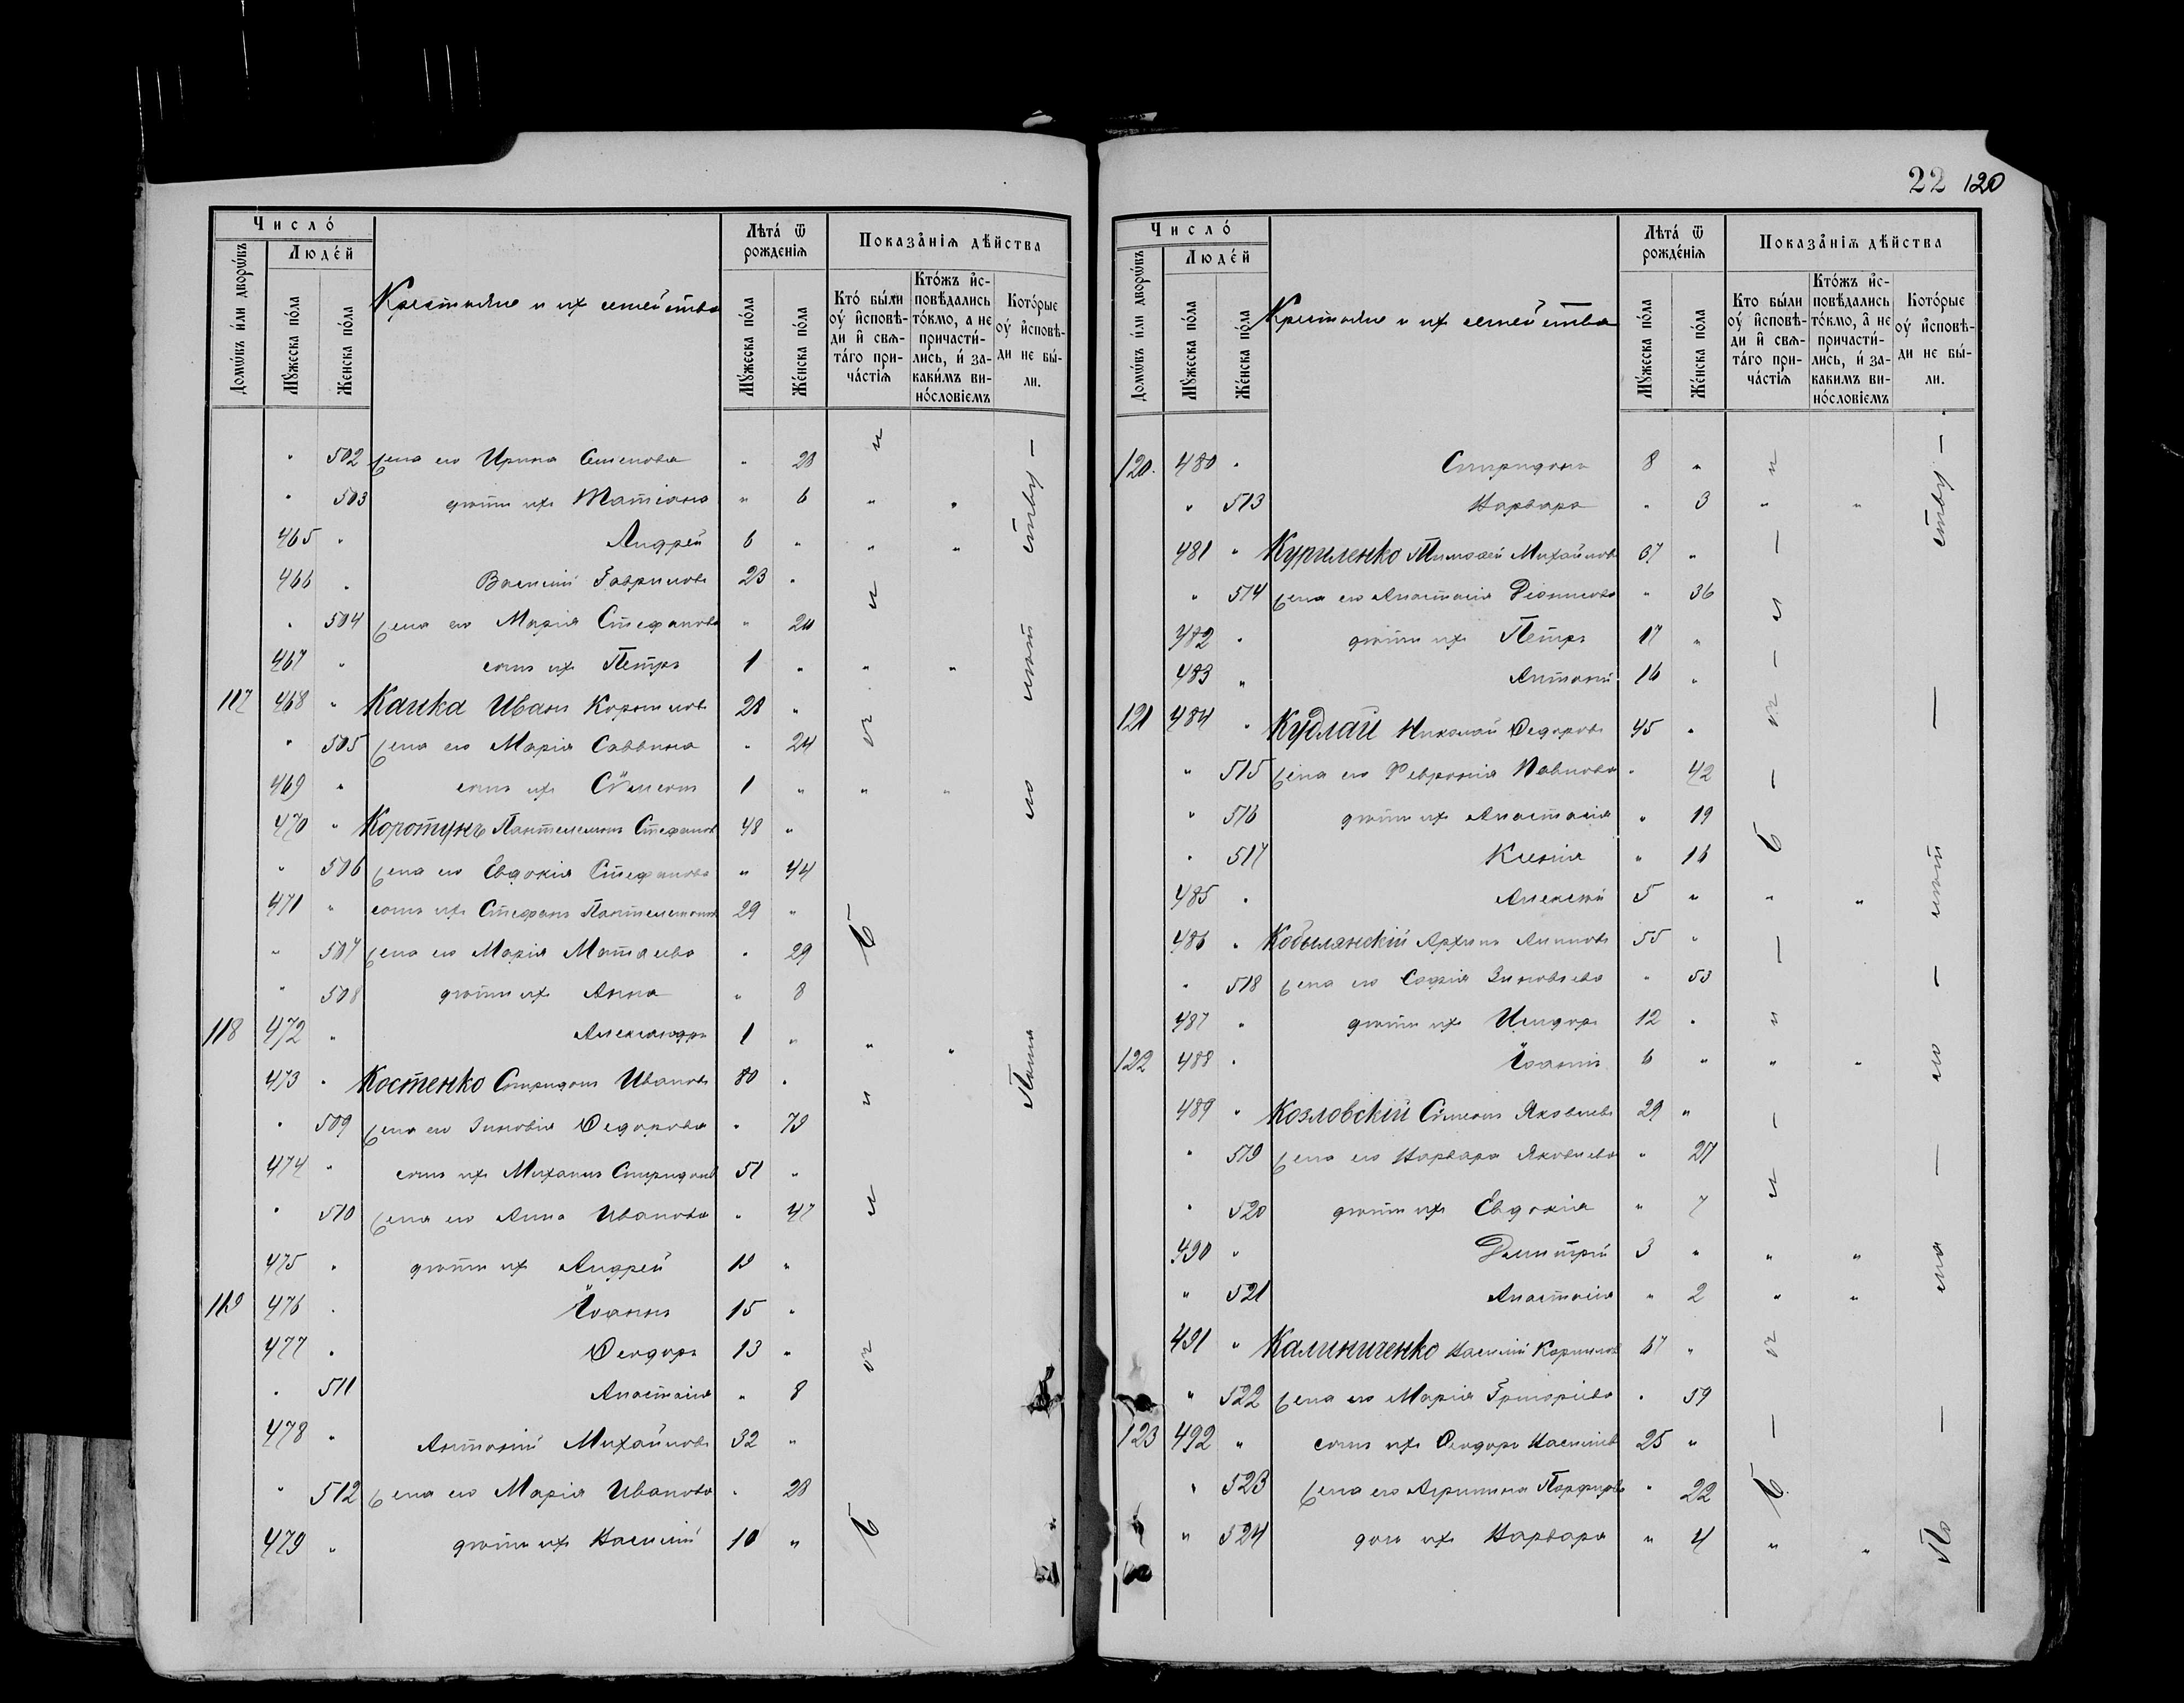 22 120
Число́
Люде́й
Домѡ́въ и́ли дворѡ́въ
Мꙋ́жеска по́ла
Же́нска по́ла
Крестьяне и ихъ семейства
Лѣта́ ѿ рожде́нїѧ
Мꙋ́жеска по́ла
Же́нска по́ла
Показа̑нїѧ дѣ́йства
Кто́ бы́ли оу҆ и҆сповѣ́ди и҆ свѧта́го прича́стїѧ
Кто́жъ и҆сповѣ́дались то́кмо, а не причасти́лись, и҆ за каки́мъ вино́словїемъ
Кото́рые оу҆ и҆сповѣ́ди не бы́ли.
" 502 жена его Ирина Семенова " 28
" 503 дѣти ихъ Татіана " 6 " "
465 " Андрей 6 " " "
466 " Василій Гавриловъ 23 "
" 504 жена его Марія Стефанова " 20
467 " сынъ ихъ Петръ 1 " " "
117 468 " Капка Иванъ Корниловъ 28 "
" 505 жена его Марія Саввина " 24
469 " сынъ ихъ Сѵмеонъ 1 " " "
470 " Коротунъ Пантелемонъ Стефановъ 48 "
" 506 жена его Евдокія Стефанова " 44
471 " сынъ ихъ Стефанъ Пантелемоновъ 29 "
" 507 жена его Марія Матѳеева " 29
" 508 дѣти ихъ Анна " 8
118 472 " Александръ 1 " " "
473 " Костенко Спиридонъ Ивановъ 80 "
" 509 жена его Зиновія Ѳедорова " 79
474 " сынъ ихъ Михаилъ Спиридоновъ 51 "
" 510 жена его Анна Иванова " 47
475 " дѣти ихъ Андрей 19 "
119 476 " Іоаннъ 15 "
477 " Ѳеодоръ 13 "
" 511 Анастасія " 8
478 " Антоній Михайловъ 32 "
" 512 жена его Марія Иванова " 28
479 " дѣти ихъ Василій 10 "
Число́
Люде́й
Домѡ́въ и́ли дворѡ́въ
Мꙋ́жеска по́ла
Же́нска по́ла
Крестьяне и ихъ семейства
Лѣта́ ѿ рожде́нїѧ
Мꙋ́жеска по́ла
Же́нска по́ла
Показа̑нїѧ дѣ́йства
Кто бы́ли оу҆ и҆сповѣ́ди и҆ свѧта́го прича́стїѧ
Кто́жъ и҆сповѣ́дались то́кмо, а҆ не причасти́лись, и҆ за каки́мъ вино́словїемъ
Кото́рые оу҆ и҆сповѣ́ди не бы́ли.
120. 480 " Спиридонъ 8 "
" 513 Варвара " 3 " "
481 " Куриленко Тимоѳей Михайловъ 37 "
" 514 жена его Анастасія Діонисова " 36
482 " дѣти ихъ Петръ 17 "
483 " Антоній 16 "
121 484 " Кудлай Николай Ѳедоровъ 45 "
" 515 жена его Февронія Павлова " 42
" 516 дѣти ихъ Анастасія " 19
" 517 Ксенія " 16
485 " Алексѣй 5 " " "
486 " Кобылянскій Архипъ 55 "
" 518 жена его Софія Зиновьева " 53
487 " дѣти ихъ Исидоръ 12 "
122 488 " Іоаннъ 6 " " "
489 " Козловскій Сѵмеонъ Яковлевъ 29 "
" 519 жена его Варвара Яковлева " 27
" 520 дѣти ихъ Евдокія " 7
490 " Димитрій 3 " " "
" 521 Анастасія " 2 " "
491 " Калиниченко Василій Корниловъ 67 "
" 522 жена его Марія Григоріева " 59
123 492 " сынъ ихъ Ѳеодоръ Васильевъ 25 "
" 523 жена его Агрипина Порфирова " 22
" 524 дочь ихъ Варвара " 4 " "